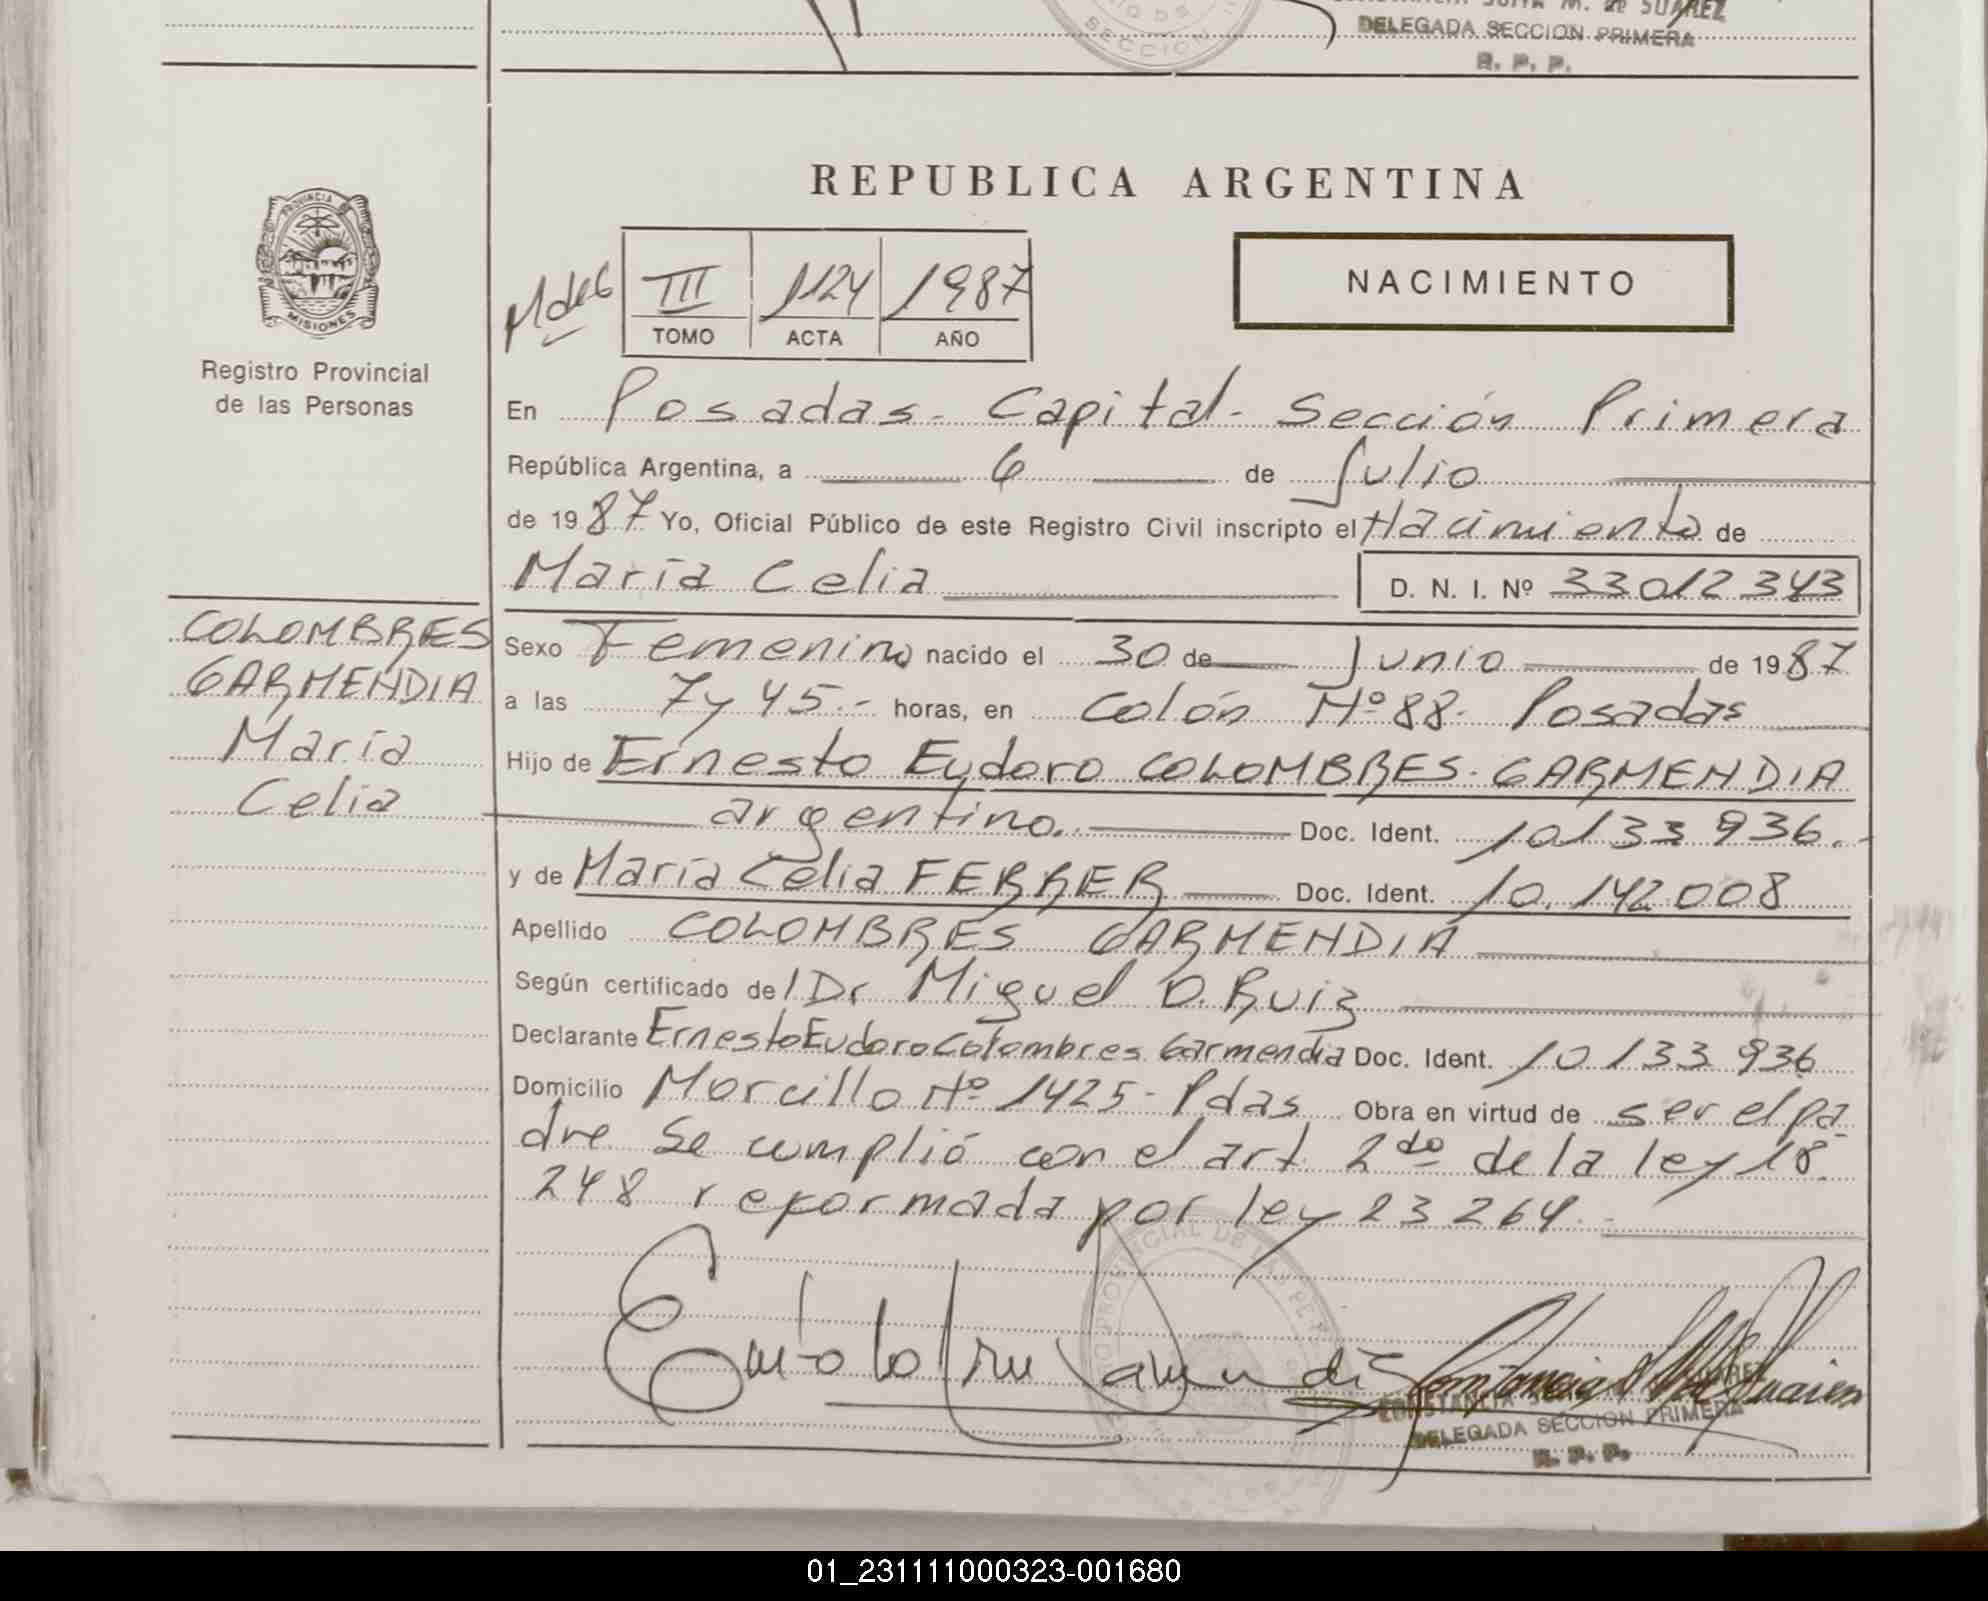 M. de SUAREZ
DELEGADA SECCION PRIMERA
R. P. P.
SECCION
REPUBLICA ARGENTINA
PROVINCIA
MISIONES
Registro Provincial
de las Personas
III 1124 1987
TOMO ACTA AÑO
NACIMIENTO
En Posadas - Capital - Sección Primera
República Argentina, a 6 de Julio
de 1987 Yo, Oficial Público de este Registro Civil inscripto el Nacimiento de
María Celia D. N. I. Nº 33012343
COLOMBRES
GARMENDIA
María
Celia
Sexo Femenino nacido el 30 de Junio de 1987
a las 7 y 45.- horas, en Colón Nº 88. Posadas
Hijo de Ernesto Eudoro COLOMBRES. GARMENDIA
argentino. Doc. Ident. 10133936.-
y de María Celia FERRER Doc. Ident. 10.142008
Apellido COLOMBRES GARMENDIA
Según certificado del Dr Miguel O. Ruiz
Declarante Ernesto Eudoro Colombres Garmendia Doc. Ident. 10133936
Domicilio Morcillo Nº 1425 - Pdas Obra en virtud de ser el pa
dre Se cumplió con el art 2do de la ley 18.
248 reformada por ley 23264.-
CONSTANCIA SUAREZ
DELEGADA SECCION PRIMERA
R. P. P.
01_231111000323-001680